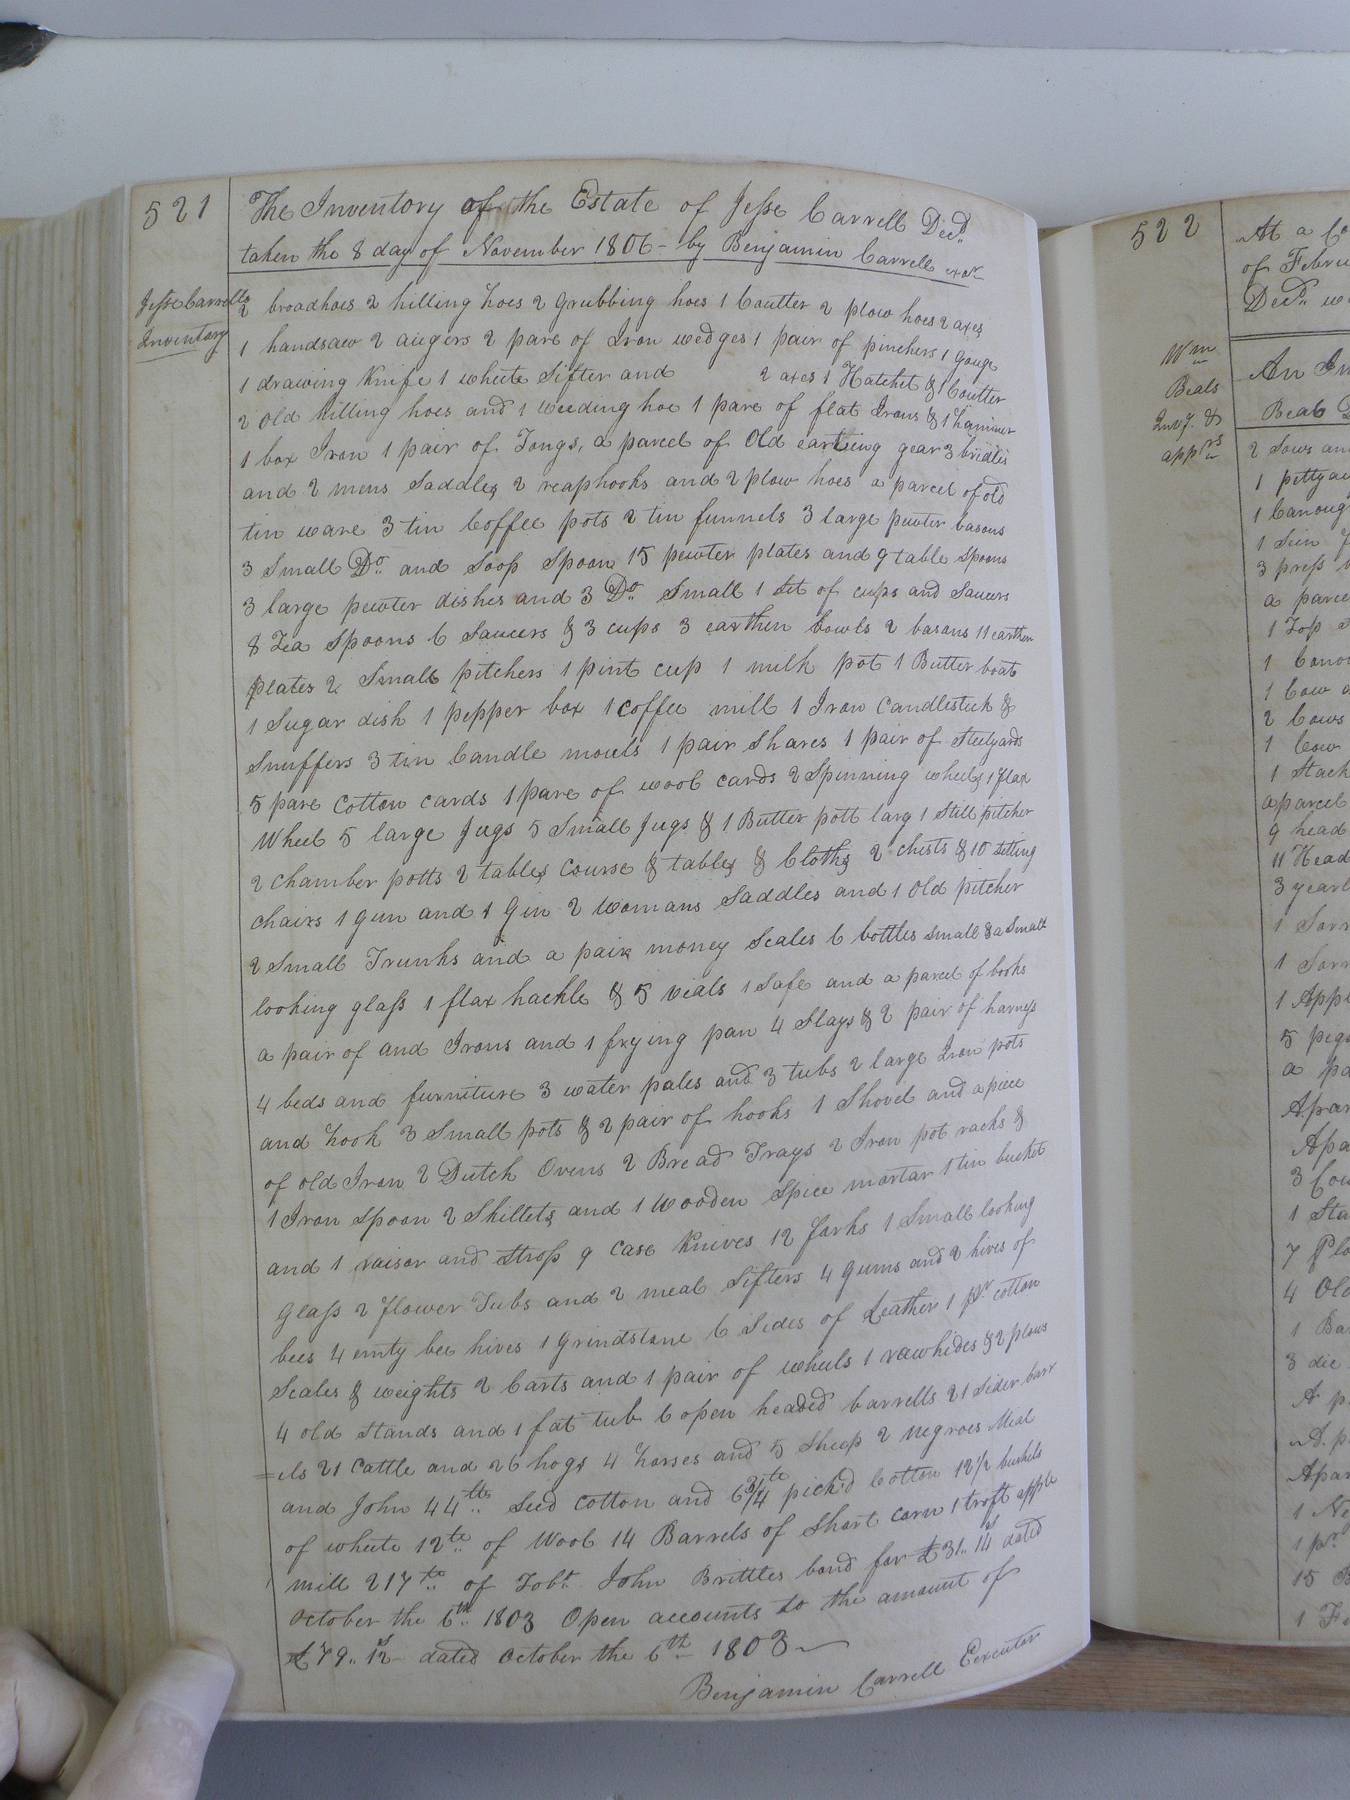 521
The Inventory of the Estate of Jesse Carrell Decd
taken the 8 day of November 1806 - by Benjamin Carrell exor
Jesse Carrells
Inventory
2 broadhoes 2 hilling hoes 2 Grubbing hoes 1 Coutter 2 plow hoes 2 axes
1 handsaw 2 augers 2 pare of Iron wedges 1 pair of pinchers 1 Gouge
1 drawing Knife 1 wheete Sifter and 2 axes 1 Hatchet & 1 Coutter
2 old hilling hoes and 1 weeding hoe 1 pare of flat Irons & 1 hammer
1 box Iron 1 pair of Tongs, a parcel of Old carting gear 3 bridles
and 2 mens Saddles 2 reaphooks and 2 plow hoes a parcel of old
tin ware 3 tin Coffee pots 2 tin funnels 3 large pewter basons
3 Small Do and Soop Spoon 15 pewter plates and 9 table Spoons
3 large pewter dishes and 3 Do Small 1 Set of cups and Saucers
8 Tea Spoons 6 Saucers & 3 cups 3 earthen bowls 2 basans 11 earthen
plates 2 Small pitchers 1 pint cup 1 milk pot 1 Butter boat
1 Sugar dish 1 pepper box 1 coffee mill 1 Iron Candlestick &
Snuffers 3 tin Candle mouls 1 pair Shares 1 pair of Steelyards
5 pare cotton cards 1 pare of wool cards 2 Spinning wheels 1 flax
Wheel 5 large Jugs 5 Small Jugs & 1 Butter pott larg 1 Still pitcher
2 chamber potts 2 tables course & tables & Cloths 2 chests & 10 sitting
chairs 1 gun and 1 Gin 2 Womans Saddles and 1 Old pitcher
2 Small Trunks and a pair money Scales 6 bottles small & a Small
looking glass 1 flax hackle & 5 vials 1 Safe and a parcel of books
a pair of and Irons and 1 frying pan 4 Slays & 2 pair of harnys
4 beds and furniture 3 water pales and 3 tubs 2 large Iron pots
and hook 3 Small pots & 2 pair of hooks 1 Shovel and a piece
of old Iron 2 Dutch Ovens 2 Bread Trays 2 Iron pot racks &
1 Iron Spoon 2 Skillets and 1 Wooden Spice mortar 1 tin bucket
and 1 raisor and Strop 9 case Knives 12 forks 1 Small looking
Glass 2 flower Tubs and 2 meal Sifters 4 Gums and 2 hives of
bees 4 emty bee hives 1 Grindstone 6 Sides of Leather 1 pr cotton
Scales & weights 2 Carts and 1 pair of wheels 1 rawhides & 2 plows
4 old Stands and 1 fat tub 6 open headed barrells 21 Sider barr
=els 21 cattle and 26 hogs 4 horses and 5 Sheep 2 negroes Meal
and John 44 lb Seed cotton and 6 3/4 lb pick'd Cotton 12 1/2 bushels
of wheete 12 lb of Wool 14 Barrels of Short corn 1 troft apple
mill 217 lb of Tobo John Brittles bond for £31.. 14s dated
October the 6th 1803 Open accounts to the amount of
£79.. 12s dated October the 6th 1803
Benjamin Carrell Executor
522
At a Co
of Febru
Decd. w
Wm
Beals
Invy. &
apprs
An In
Beals
2 Sows an
1 pettyau
1 Canoug
3 press
a parce
1 Top
1 Cano
1 Cow
2 Cows
1 Cow
1 Stack
a parcel
9 head
11 Head
3 yearl
1 Sorr
1 Sorr
1 Appl
5 pegs
a pa
Apar
Apa
3 Cou
1 Sta
7 Plo
4 Old
1 Bar
3 die
A p
A p
Apar
1 Ne
1 pr
15 B
1 Fe